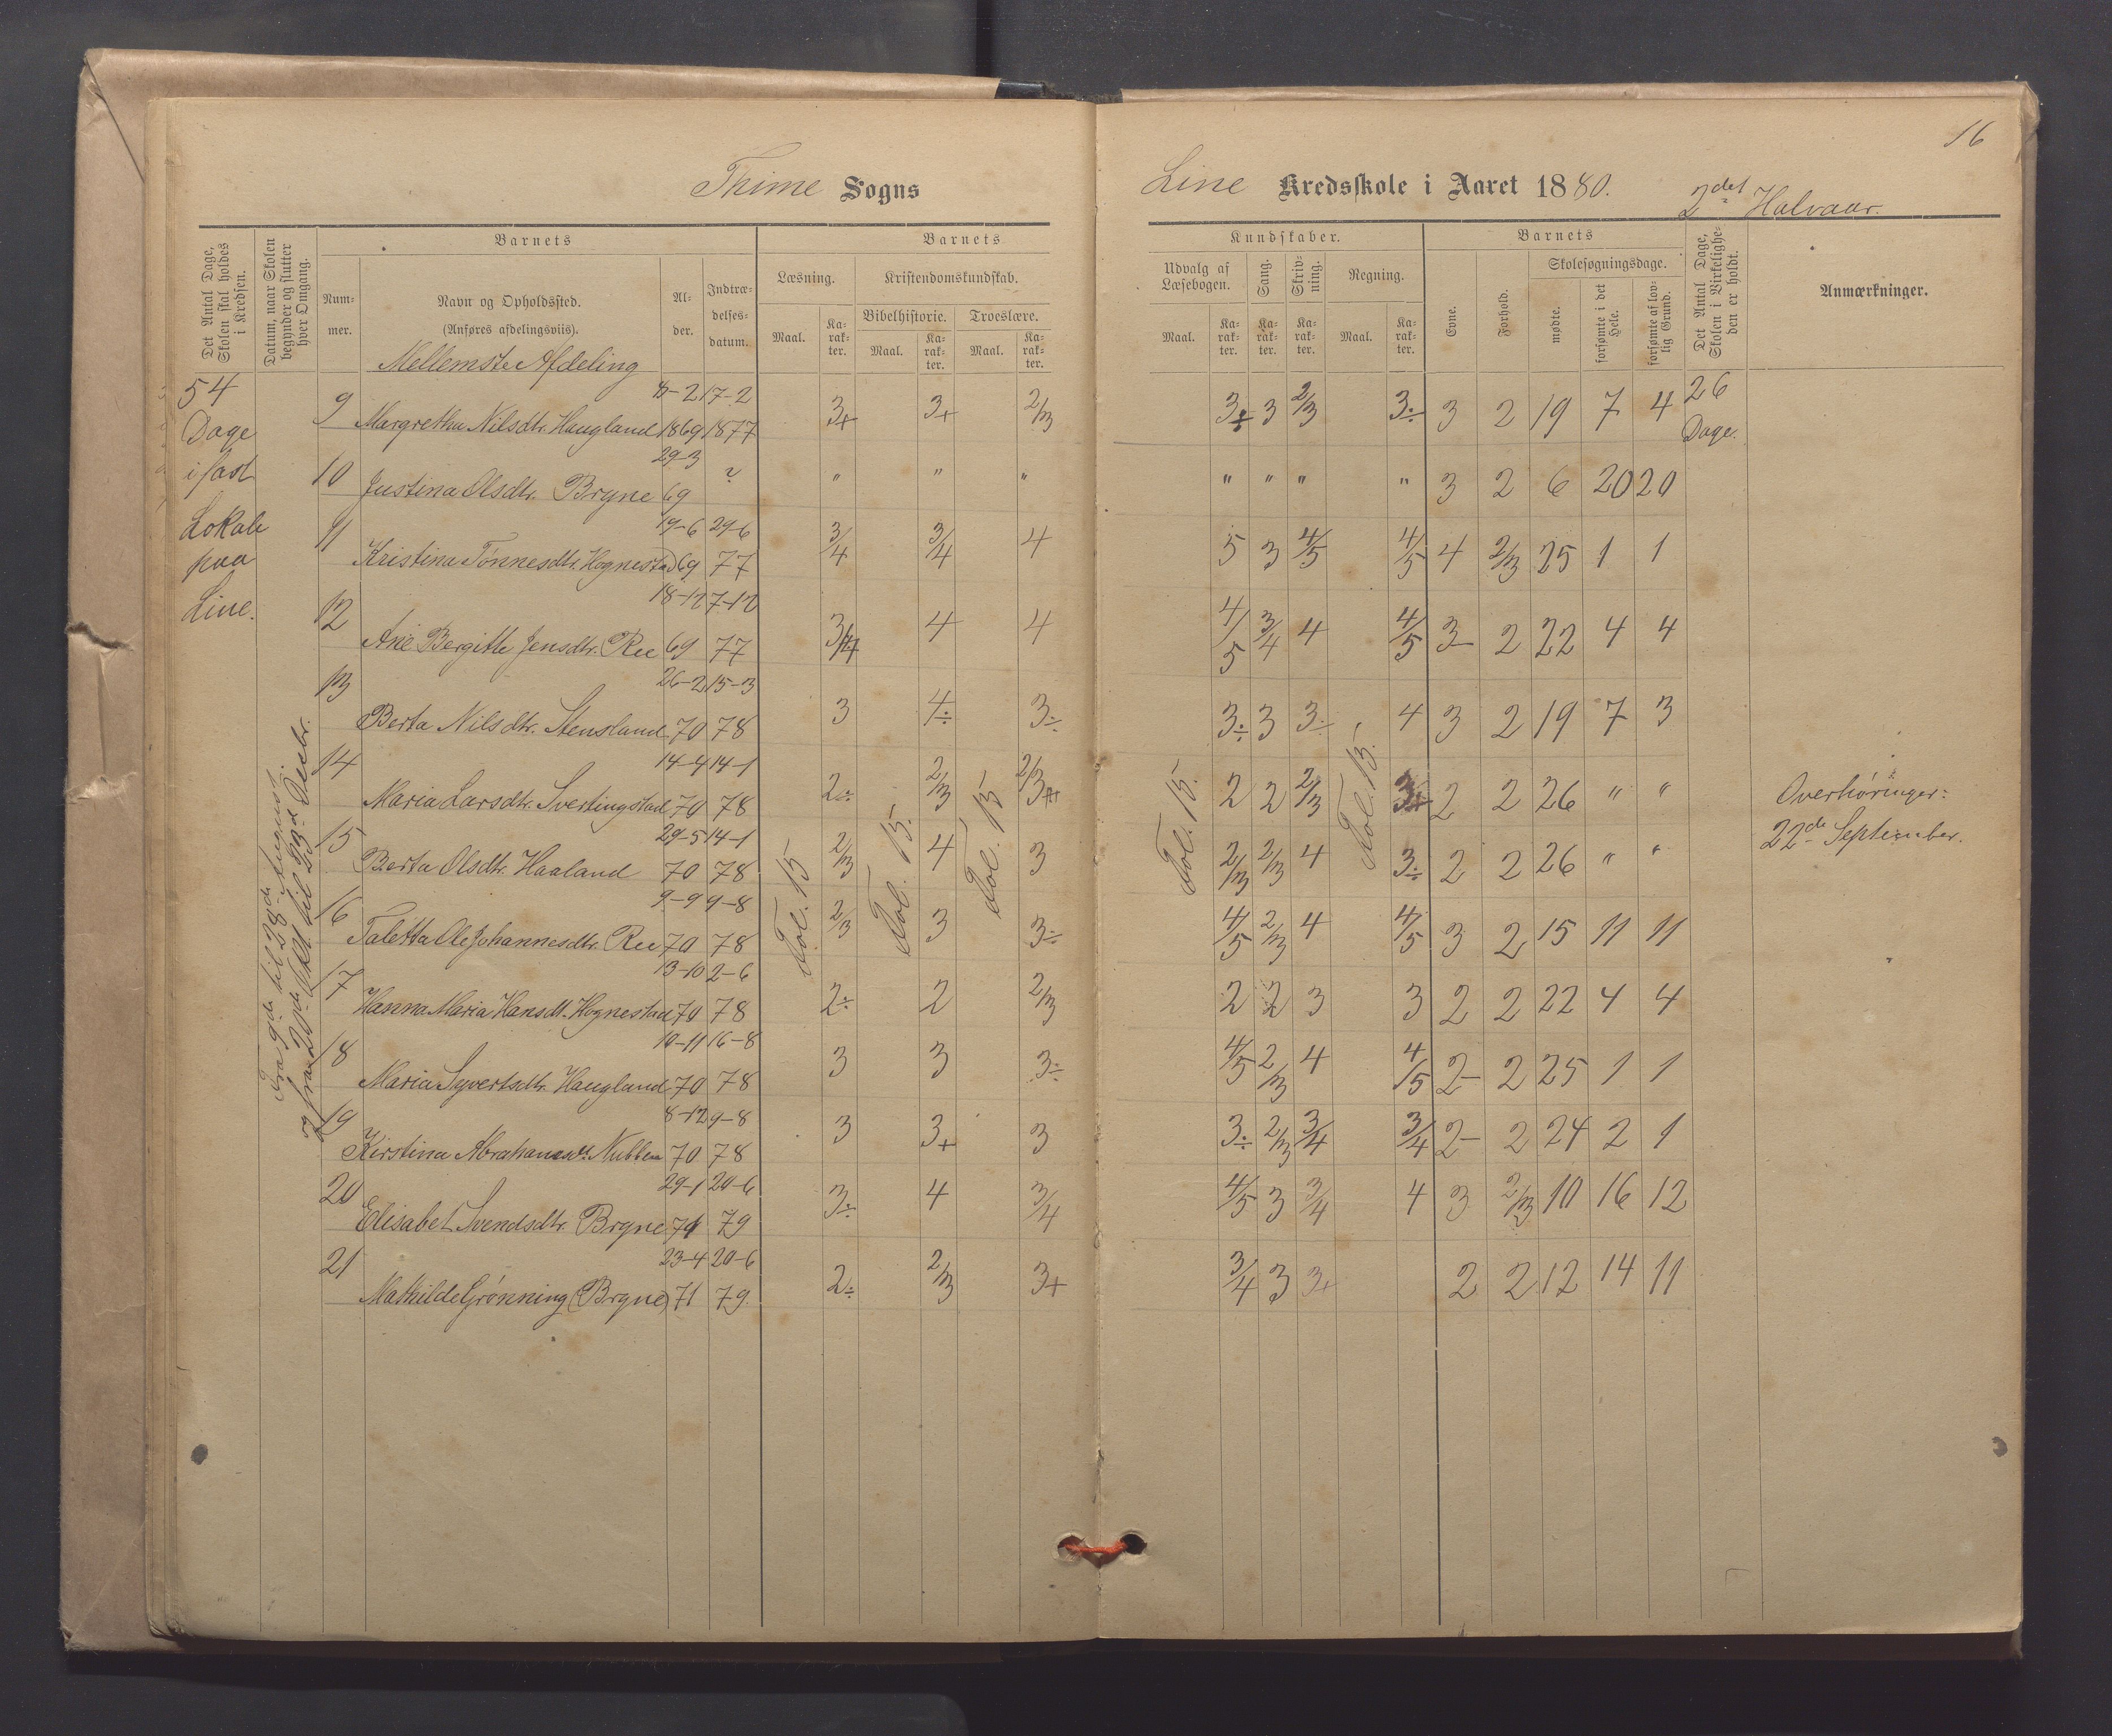 16
Thime Sogns
Line Kredsskole i Aaret 1880. 2det Halvaar.
Det Antal Dage, Skolen skal holdes i Kredsen.
Datum, naar Skolen begynder og slutter hver Omgang.
Barnets
Num-mer.
Navn og Opholdssted.
(Anføres afdelingsviis).
Mellemste Afdeling
Al-der.
Indtræ-delses-datum.
Barnets
Læsning.
Maal.
Ka-rak-ter.
Kristendomskundskab.
Bibelhistorie.
Maal.
Ka-rak-ter.
Troeslære.
Maal.
Ka-rak-ter.
Kundskaber.
Udvalg af Læsebogen.
Maal.
Ka-rak-ter.
Sang.
Ka-rak-ter.
Skriv-ning.
Ka-rak-ter.
Regning.
Maal.
Ka-rak-ter.
Barnets
Evne.
Forhold.
Skolesøgningsdage.
mødte.
forsømte i det Hele.
forsømte af lov-lig Grund.
Det Antal Dage, Skolen i Virkelighe-den er holdt.
Anmærkninger.
54
Dage
i fast
Lokale
paa
Line.
Fra 9de til 28de August
og fra 20de Okt. til 23de Decbr.
9 Margretha Nilsdtr. Haugland 8-2 1869 17-2 1877 3+ 3+ 2/3 3+ 3 2/3 3÷ 3 2 19 7 4 26 Dage.
10 Justina Olsdtr. Bryne 29-3 69 ? " " " " " " " 3 2 6 20 20
11 Kristina Tønnesdtr. Hognestad 19-6 69 29-6 77 3/4 3/4 4 5 3 4/5 4/5 4 2/3 25 1 1
12 Ane Bergitte Jensdtr. Ree 18-12 69 7-12 77 4 4 4/5 3/4 4 4/5 3- 2 22 4 4
13 Berta Nilsdtr. Stensland 26-2 70 15-3 78 3 4÷ 3÷ 3÷ 3 3÷ 4 3 2 19 7 3
14 Maria Larsdtr. Svertingstad 14-4 70 14-1 78 2÷ 2/3 2/3 2 2 2/3 3+ 2 2 26 " "
15 Berta Olsdtr. Haaland 29-5 70 14-1 78 2/3 4 3 2/3 2/3 4 3÷ 2 2 26 " "
16 Taletta Ole Johannesdtr. Ree 9-9 70 9-8 78 2/3 3 3÷ 4/5 2/3 4 4/5 3 2 15 11 11
17 Hanna Maria Hansdt. Hognestad 13-10 70 2-6 78 2÷ 2 2/3 2 2 3 3 2 2 22 4 4
18 Maria Syvertsdtr. Haugland 10-11 70 16-8 78 3 3 3÷ 4/5 2/3 4 4/5 2- 2 25 1 1
19 Kirstina Abrahamsdt. Nubben 8-12 70 9-8 78 3 3+ 3 3÷ 2/3 3/4 3/4 2- 2 24 2 1
20 Elisabet Svendsdtr. Bryne 29-1 71 20-6 79 3÷ 4 3/4 4/5 3 3/4 4 3 2/3 10 16 12
21 Mathilde Grønning (Bryne) 23-4 71 20-6 79. 2÷ 2/3 3+ 3/4 3 3+ 2 2 12 14 11
Fol. 15
Fol. 15.
Fol. 15
Fol. 15.
Fol. 15.
Overhøringer:
22de September.